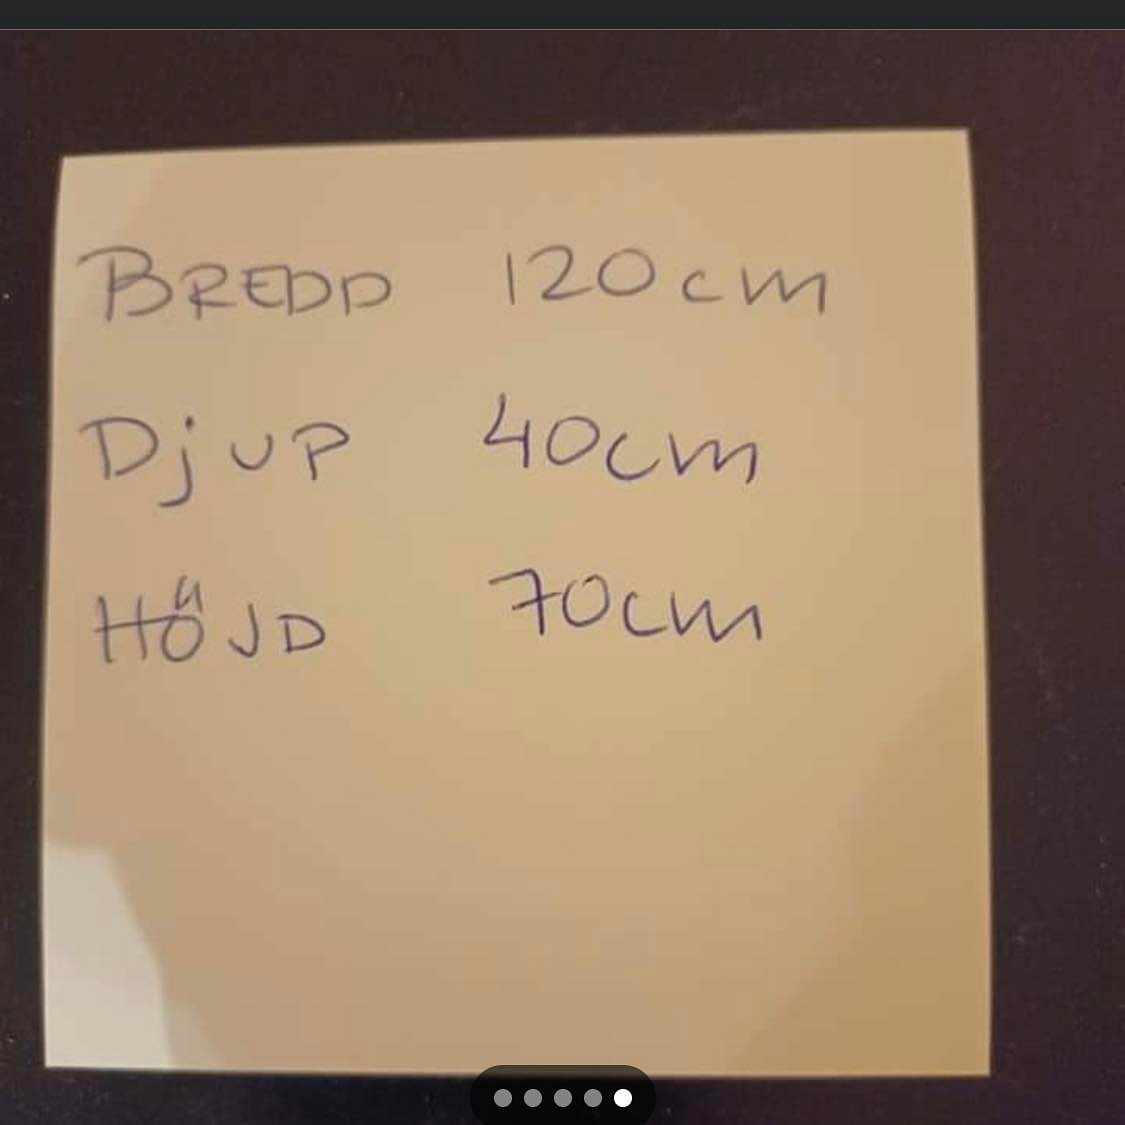 BREDD 120cm
DjUP 40cm
HÖJD 70cm